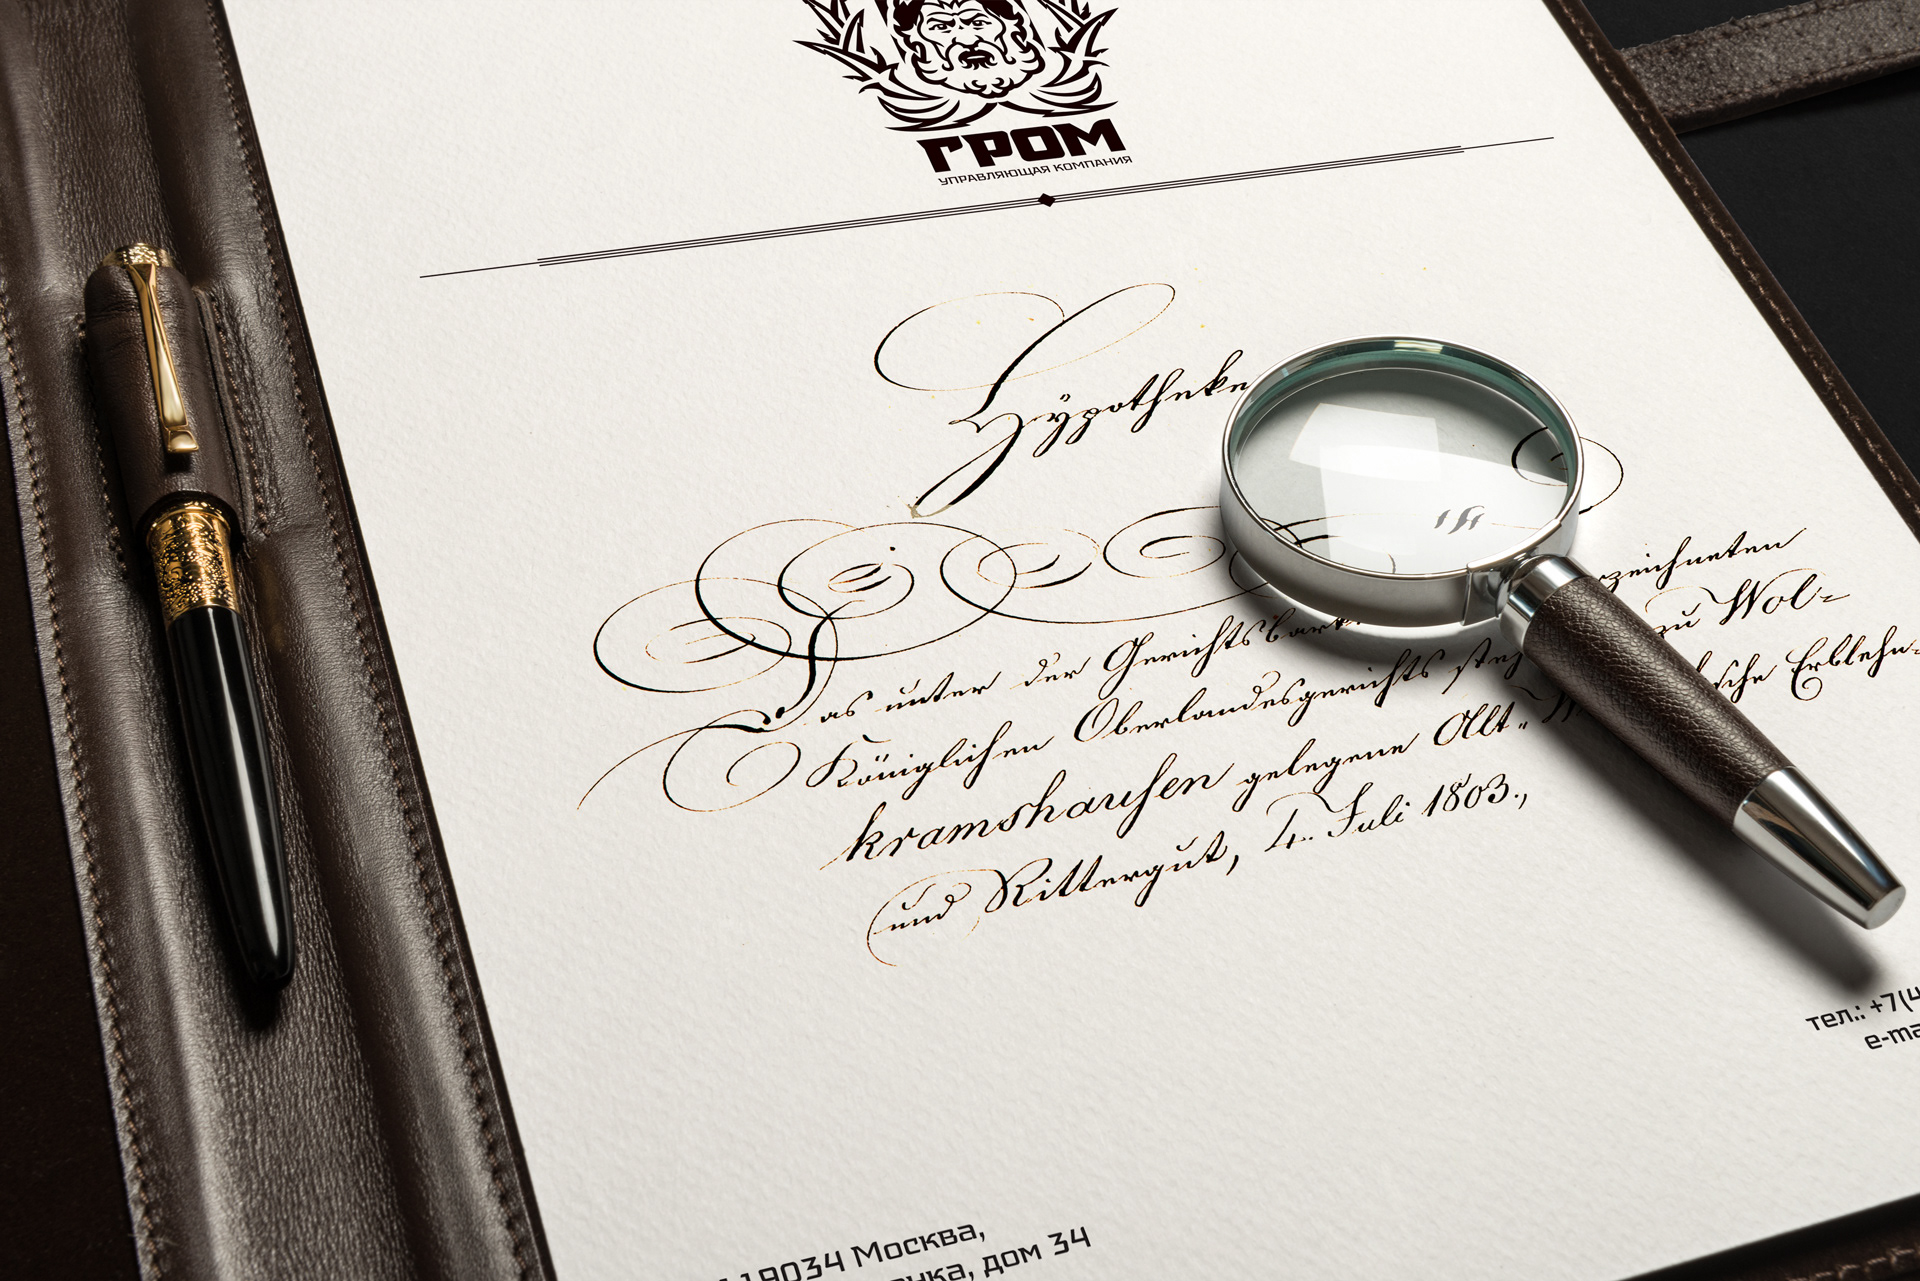 ГРОМ
УПРАВЛЯЮЩАЯ КОМПАНИЯ
Hÿpotheke
Das unter der Gerichtsbark zeichneten
Königlichen Oberlandesgerichts zu Wol=
kramshausen gelegene Allt= sche Erblehn=
und Rittergut, 4. Juli 1803.,
тел.: +7(4
e-ma
119034 Москва,
дом 34